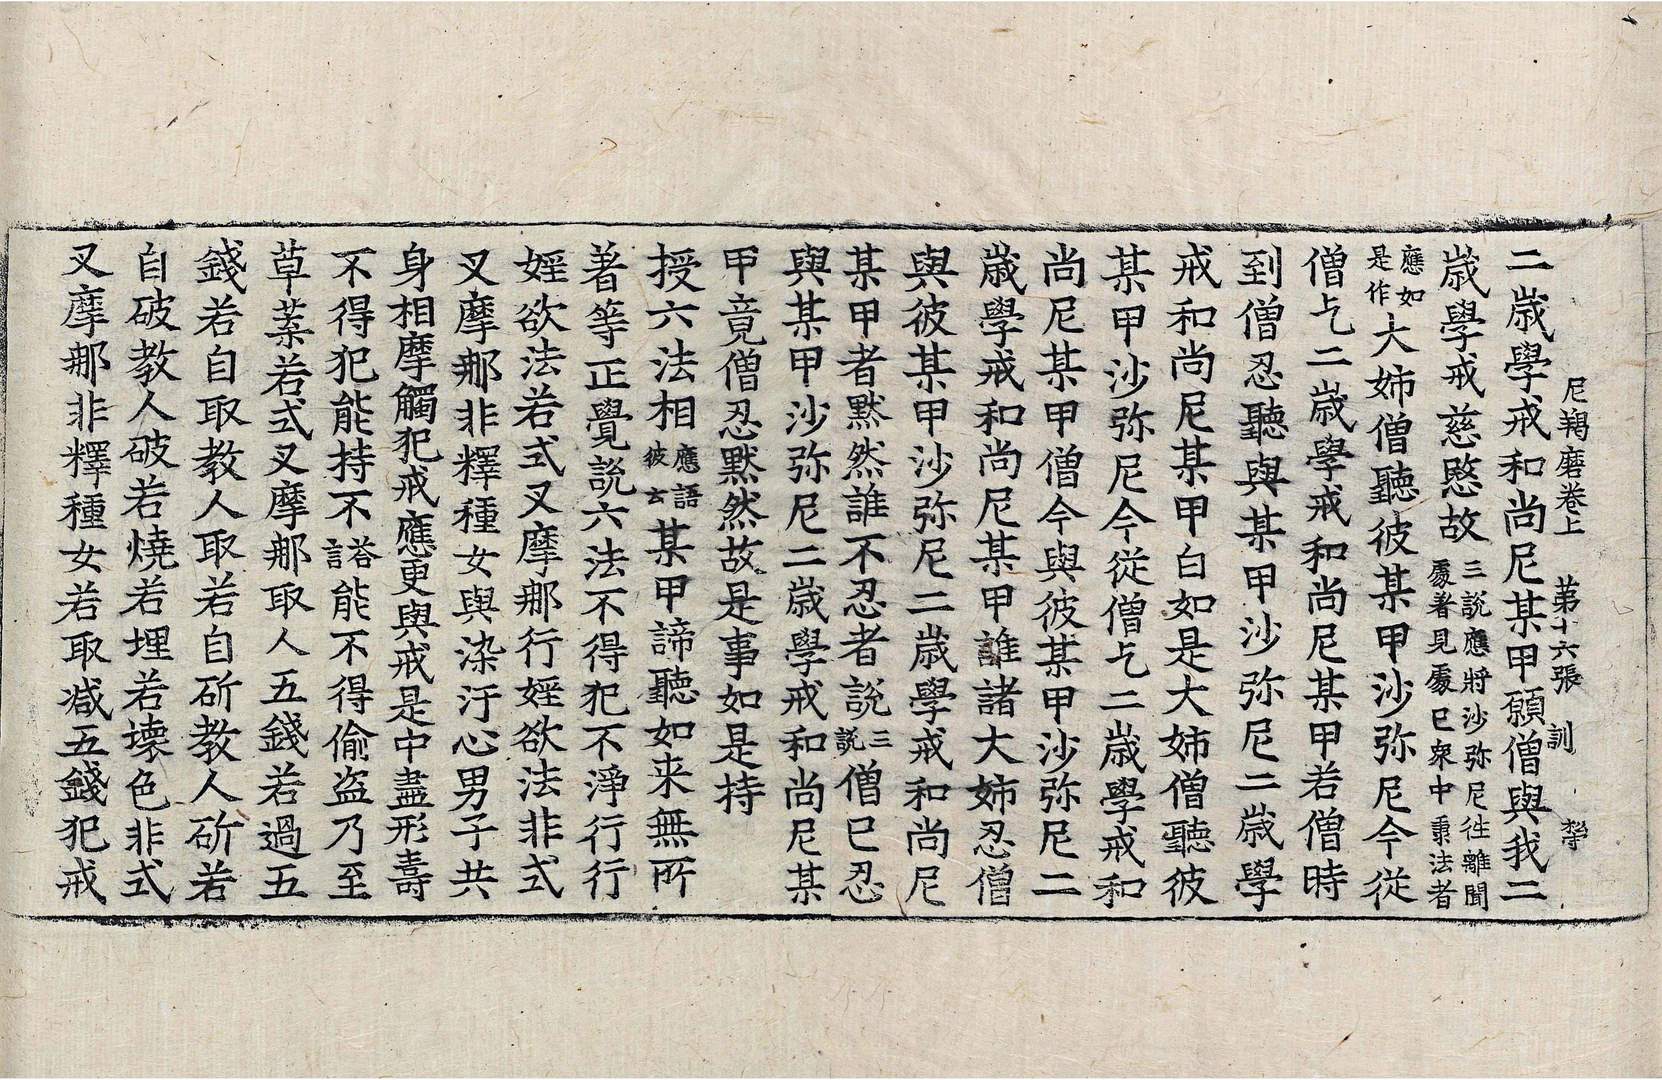 尼羯磨卷上 第十六張 訓
二歲學戒和尚尼某甲願僧與我二
歲學戒慈愍故三說應將沙弥尼往離聞
處著見處已衆中秉法者
應如
是作大姉僧聽彼某甲沙弥尼今從
僧乞二歲學戒和尚尼某甲若僧時
到僧忍聽與某甲沙弥尼二歲學
戒和尚尼某甲白如是大姉僧聽彼
某甲沙弥尼今從僧乞二歲學戒和
尚尼某甲僧今與彼某甲沙弥尼二
歲學戒和尚尼某甲誰諸大姉忍僧
與彼某甲沙弥尼二歲學戒和尚尼
某甲者默然誰不忍者說三說僧已忍
與某甲沙弥尼二歲學戒和尚尼某
甲竟僧忍默然故是事如是持
授六法相應語彼云某甲諦聽如来無所
著等正覺說六法不得犯不淨行行
婬欲法若式叉摩那行婬欲法非式
叉摩那非釋種女與染汙心男子共
身相摩觸犯戒應更與戒是中盡形壽
不得犯能持不答言能不得偷盜乃至
草葉若式叉摩那取人五錢若過五
錢若自取教人取若自斫教人斫若
自破教人破若燒若埋若壞色非式
叉摩那非釋種女若取減五錢犯戒